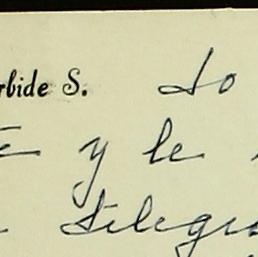 rbide S. Lo
y le
telegra